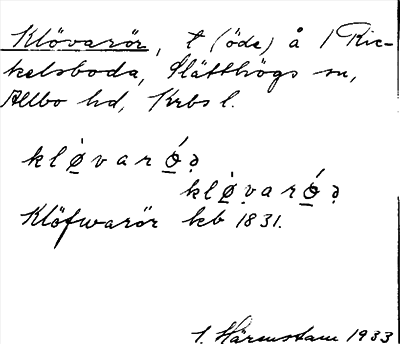 Klövarör, t (öde) å 1 Ric-
kelsboda, Slätthögs sn,
Allbo hd, Krbs l.
klø̀varǿ̠ə
klø̀varǿ̠ə
Klöfwarör kb 1831.
S. Härmstam 1933